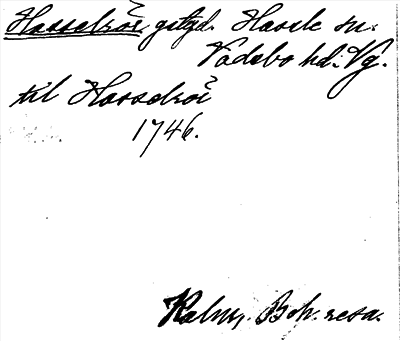 Hasselrör gstgd. Hassle sn.
Vadsbo hd. Vg.
til Hasselroi
1746.
Kalm, Boh. resa.